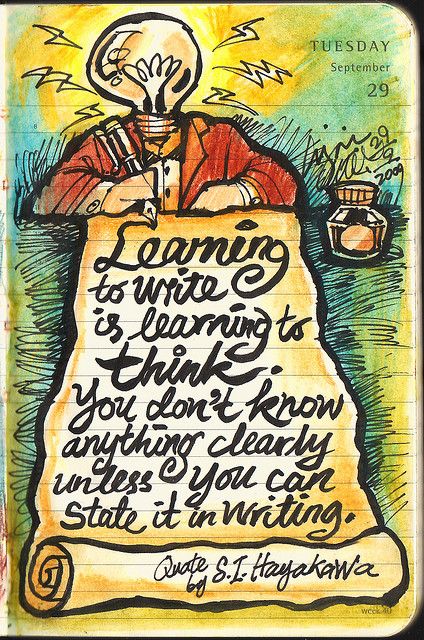 TUESDAY
September
29
29
9
2009
Learning
to write
is learning to
think.
You don't know
anything clearly
unless you can
state it in writing.
Quote
by S.I. Hayakawa
week 40